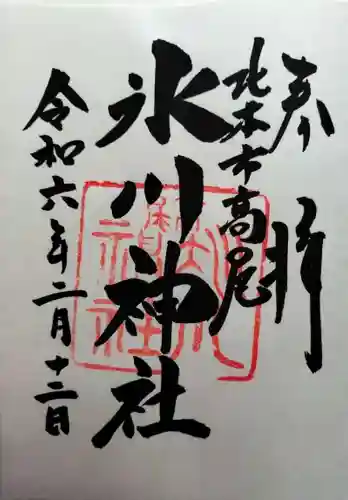 奉拝
北本市高尾
氷川神社
令和六年二月十二日